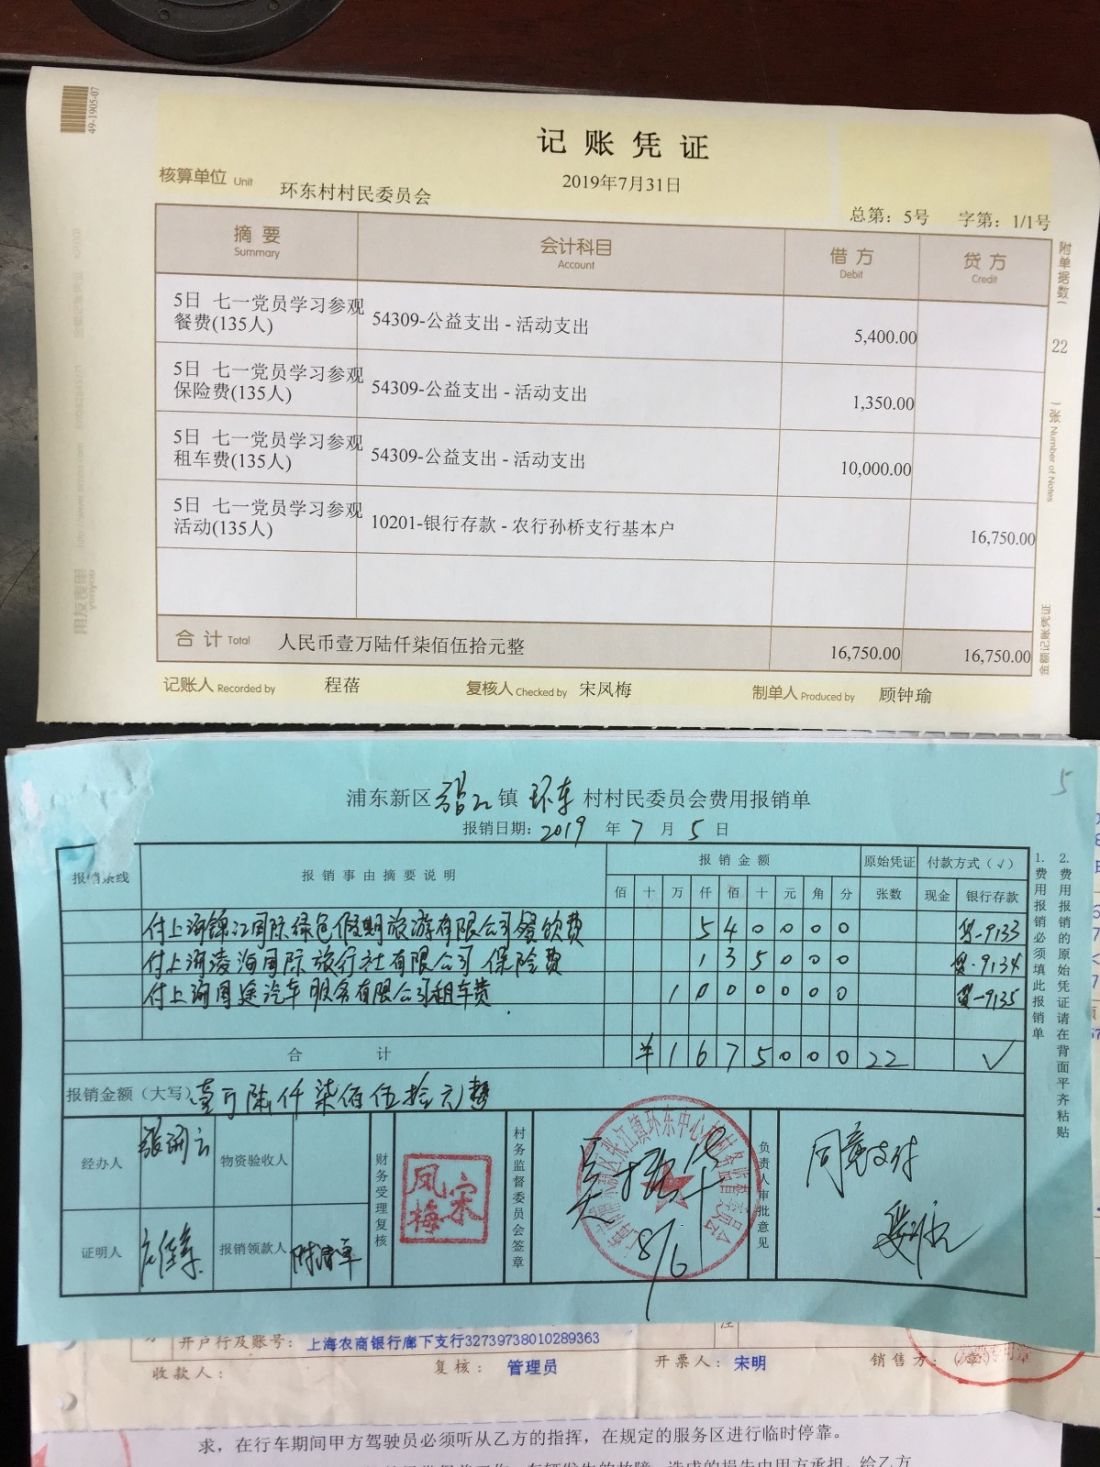 49-1905-07
记账凭证
2019年7月31日
核算单位 Unit 环东村村民委员会
总第：5号 字第：1/1号
摘要 会计科目 借方 贷方
Summary Account Debit Credit
5日 七一党员学习参观
餐费(135人) 54309-公益支出 - 活动支出 5,400.00
5日 七一党员学习参观
保险费(135人) 54309-公益支出 - 活动支出 1,350.00
5日 七一党员学习参观
租车费(135人) 54309-公益支出 - 活动支出 10,000.00
5日 七一党员学习参观
活动(135人) 10201-银行存款 - 农行孙桥支行基本户 16,750.00
合计 Total 人民币壹万陆仟柒佰伍拾元整 16,750.00 16,750.00
记账人 Recorded by 程蓓 复核人 Checked by 宋凤梅 制单人 Produced by 顾钟瑜
附单据数( 22 )张 Number of Notes
金额记账凭证
5
浦东新区张江镇环东村村民委员会费用报销单
报销日期：2019年7月5日
报销条线 报销事由摘要说明 报销金额 原始凭证 付款方式（√）
佰 十 万 仟 佰 十 元 角 分 张数 现金 银行存款
付上海锦江国际绿色假期旅游有限公司餐饮费 5 4 0 0 0 0 贷-9133
付上海凌海国际旅行社有限公司保险费 1 3 5 0 0 0 贷-9134
付上海周速汽车服务有限公司租车费 1 0 0 0 0 0 0 贷-9135
合计 ¥ 1 6 7 5 0 0 0 22 √
报销金额（大写）壹万陆仟柒佰伍拾元整
经办人 物资验收人 财务受理复核 宋凤梅 村务监督委员会签章 8/6 负责人审批意见 同意支付
证明人 报销领款人
1.费用报销必须填此报销单
2.费用报销的原始凭证请在背面平齐粘贴
开户行及账号：上海农商银行廊下支行32739738010289363
收款人： 复核：管理员 开票人：宋明 销售方：（章）
求，在行车期间甲方驾驶员必须听从乙方的指挥，在规定的服务区进行临时停靠。